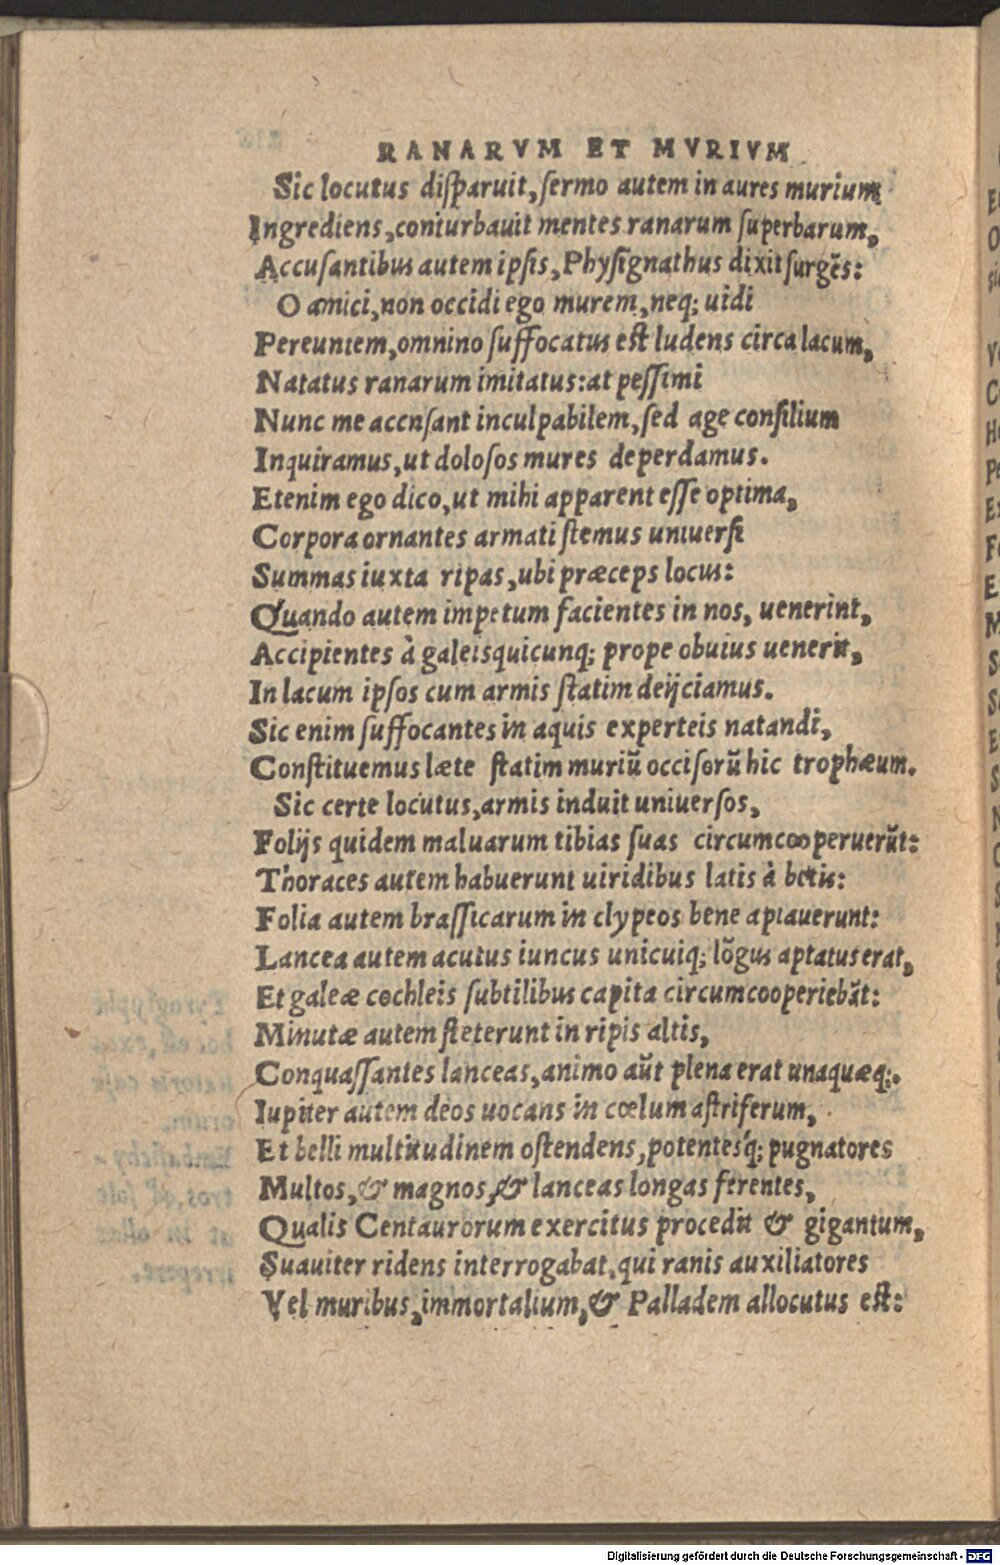 RANARVM ET MVRIVM
Sic locutus disparuit, sermo autem in aures murium
Ingrediens, conturbauit mentes ranarum superbarum,
Accusantibus autem ipsis, Physignathus dixit surgẽs:
O amici, non occidi ego murem, neq; uidi
Pereuntem, omnino suffocatus est ludens circa lacum,
Natatus ranarum imitatus: at pessimi
Nunc me accnsant inculpabilem, sed age consilium
Inquiramus, ut dolosos mures deperdamus.
Etenim ego dico, ut mihi apparent esse optima,
Corpora ornantes armati stemus uniuersi
Summas iuxta ripas, ubi præceps locus:
Quando autem impetum facientes in nos, uenerint,
Accipientes à galeis quicunq; prope obuius uenerit,
In lacum ipsos cum armis statim deijciamus.
Sic enim suffocantes in aquis experteis natandi,
Constituemus læte statim muriũ occisorũ hic trophæum.
Sic certe locutus, armis induit uniuersos,
Folijs quidem maluarum tibias suas circumcooperuerũt:
Thoraces autem habuerunt uiridibus latis à betis:
Folia autem brassicarum in clypeos bene aptauerunt:
Lancea autem acutus iuncus unicuiq; lõgus aptatus erat,
Et galeæ cochleis subtilibus capita circumcooperiebãt:
Minutæ autem steterunt in ripis altis,
Conquassantes lanceas, animo aũt plena erat unaquæq;.
Iupiter autem deos uocans in cœlum astriferum,
Et belli multitudinem ostendens, potentesq́; pugnatores
Multos, & magnos, & lanceas longas ferentes,
Qualis Centaurorum exercitus procedit & gigantum,
Suauiter ridens interrogabat, qui ranis auxiliatores
Vel muribus, immortalium, & Palladem allocutus est:
Digitalisierung gefördert durch die Deutsche Forschungsgemeinschaft - DFG